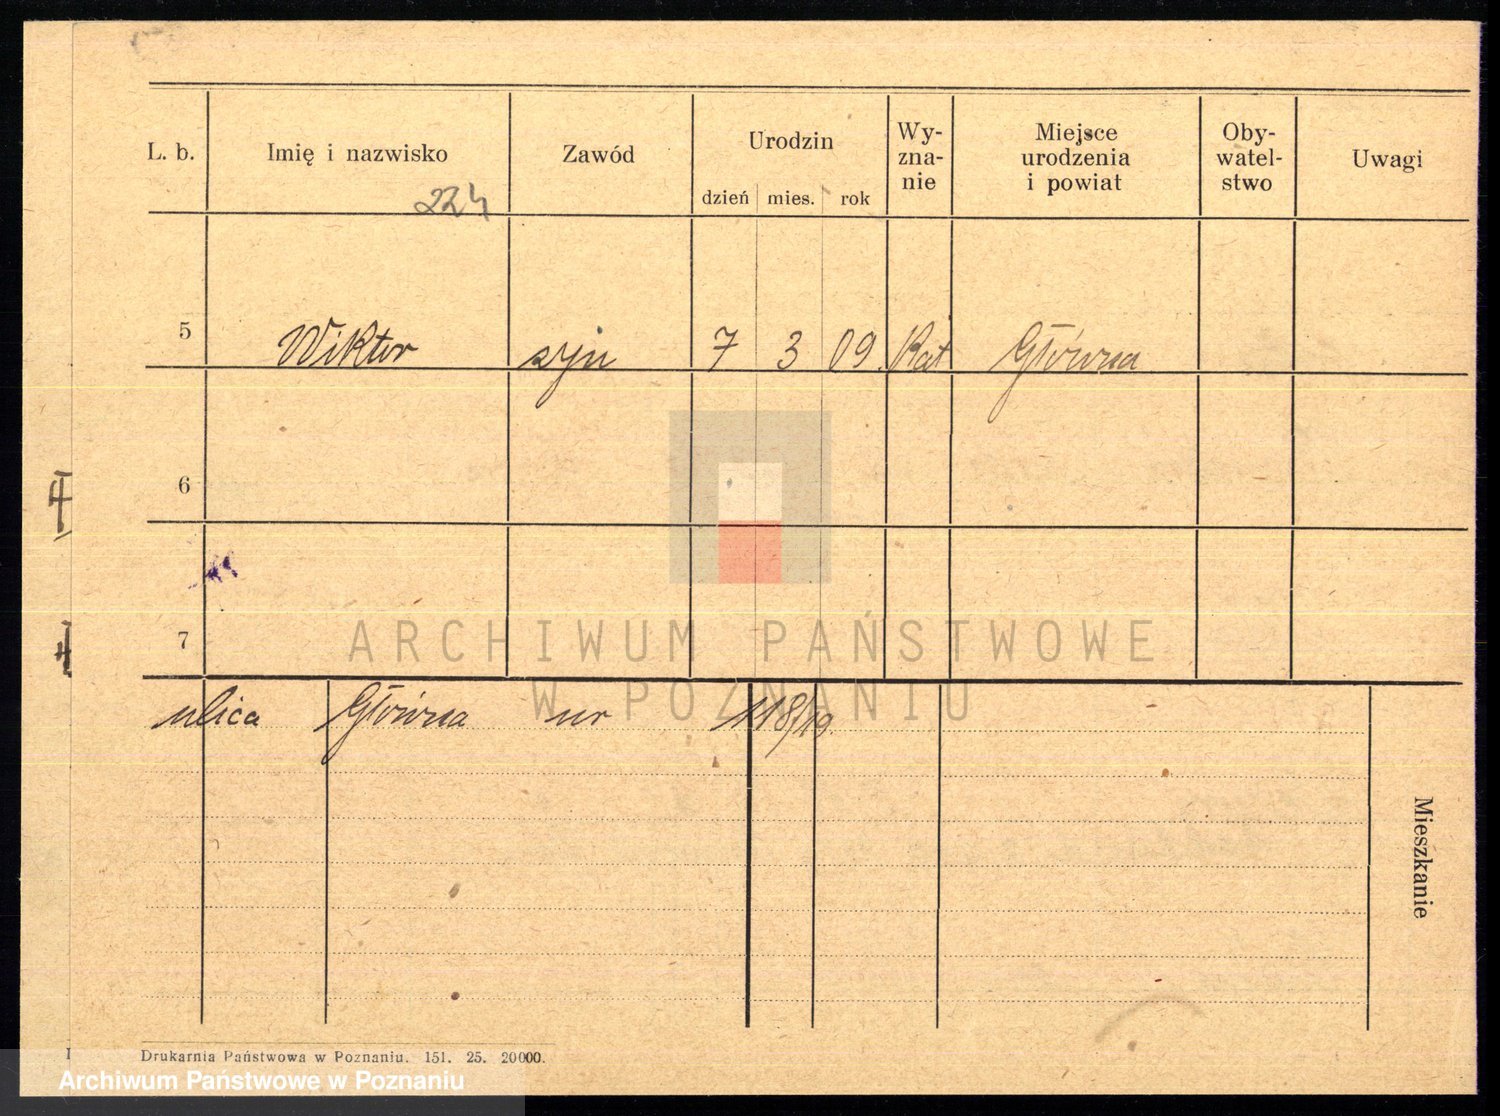 L. b. Imię i nazwisko Zawód Urodzin Wy-zna-nie Miejsce urodzenia i powiat Oby-watel-stwo Uwagi
dzień mies. rok
224
5 Wiktor syn 7 3 09. Kat Główna
6
7
ARCHIWUM PAŃSTWOWE
W POZNANIU
ulica Główna nr 118/19.
Mieszkanie
Drukarnia Państwowa w Poznaniu. 151. 25. 20000.
Archiwum Państwowe w Poznaniu